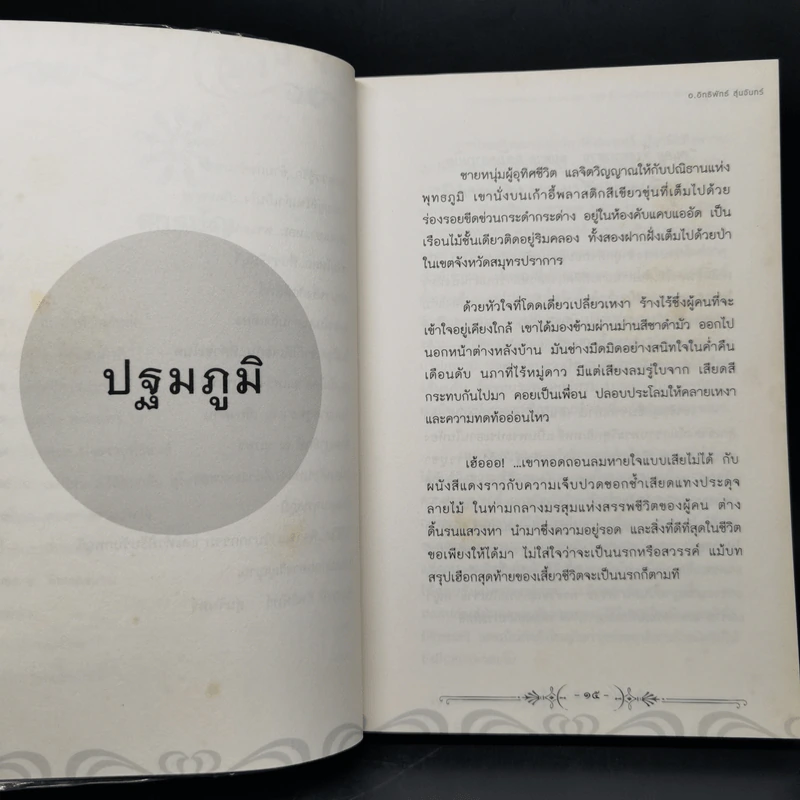 ปฐมภูมิ
อ.อิทธิพัทธ์ สุ่นจันทร์
ชายหนุ่มผู้อุทิศชีวิต แลจิตวิญญาณให้กับปณิธานแห่ง
พุทธภูมิ เขานั่งบนเก้าอี้พลาสติกสีเขียวขุ่นที่เต็มไปด้วย
ร่องรอยขีดข่วนกระดำกระด่าง อยู่ในห้องคับแคบแออัด เป็น
เรือนไม้ชั้นเดียวติดอยู่ริมคลอง ทั้งสองฝากฝั่งเต็มไปด้วยป่า
ในเขตจังหวัดสมุทรปราการ
ด้วยหัวใจที่โดดเดี่ยวเปลี่ยวเหงา ร้างไร้ซึ่งผู้คนที่จะ
เข้าใจอยู่เคียงใกล้ เขาได้มองข้ามผ่านม่านสีชาดำมัว ออกไป
นอกหน้าต่างหลังบ้าน มันช่างมืดมิดอย่างสนิทใจในค่ำคืน
เดือนดับ นภาที่ไร้หมู่ดาว มีแต่เสียงลมรู่ใบจาก เสียดสี
กระทบกันไปมา คอยเป็นเพื่อน ปลอบประโลมให้คลายเหงา
และความทดท้ออ่อนไหว
เฮ้อออ! ...เขาทอดถอนลมหายใจแบบเสียไม่ได้ กับ
ผนังสีแดงราวกับความเจ็บปวดชอกช้ำเสียดแทงประดุจ
ลายไม้ ในท่ามกลางมรสุมแห่งสรรพชีวิตของผู้คน ต่าง
ดิ้นรนแสวงหา นำมาซึ่งความอยู่รอด และสิ่งที่ดีที่สุดในชีวิต
ขอเพียงให้ได้มา ไม่ใส่ใจว่าจะเป็นนรกหรือสวรรค์ แม้บท
สรุปเฮือกสุดท้ายของเสี้ยวชีวิตจะเป็นนรกก็ตามที
- ๑๕ -